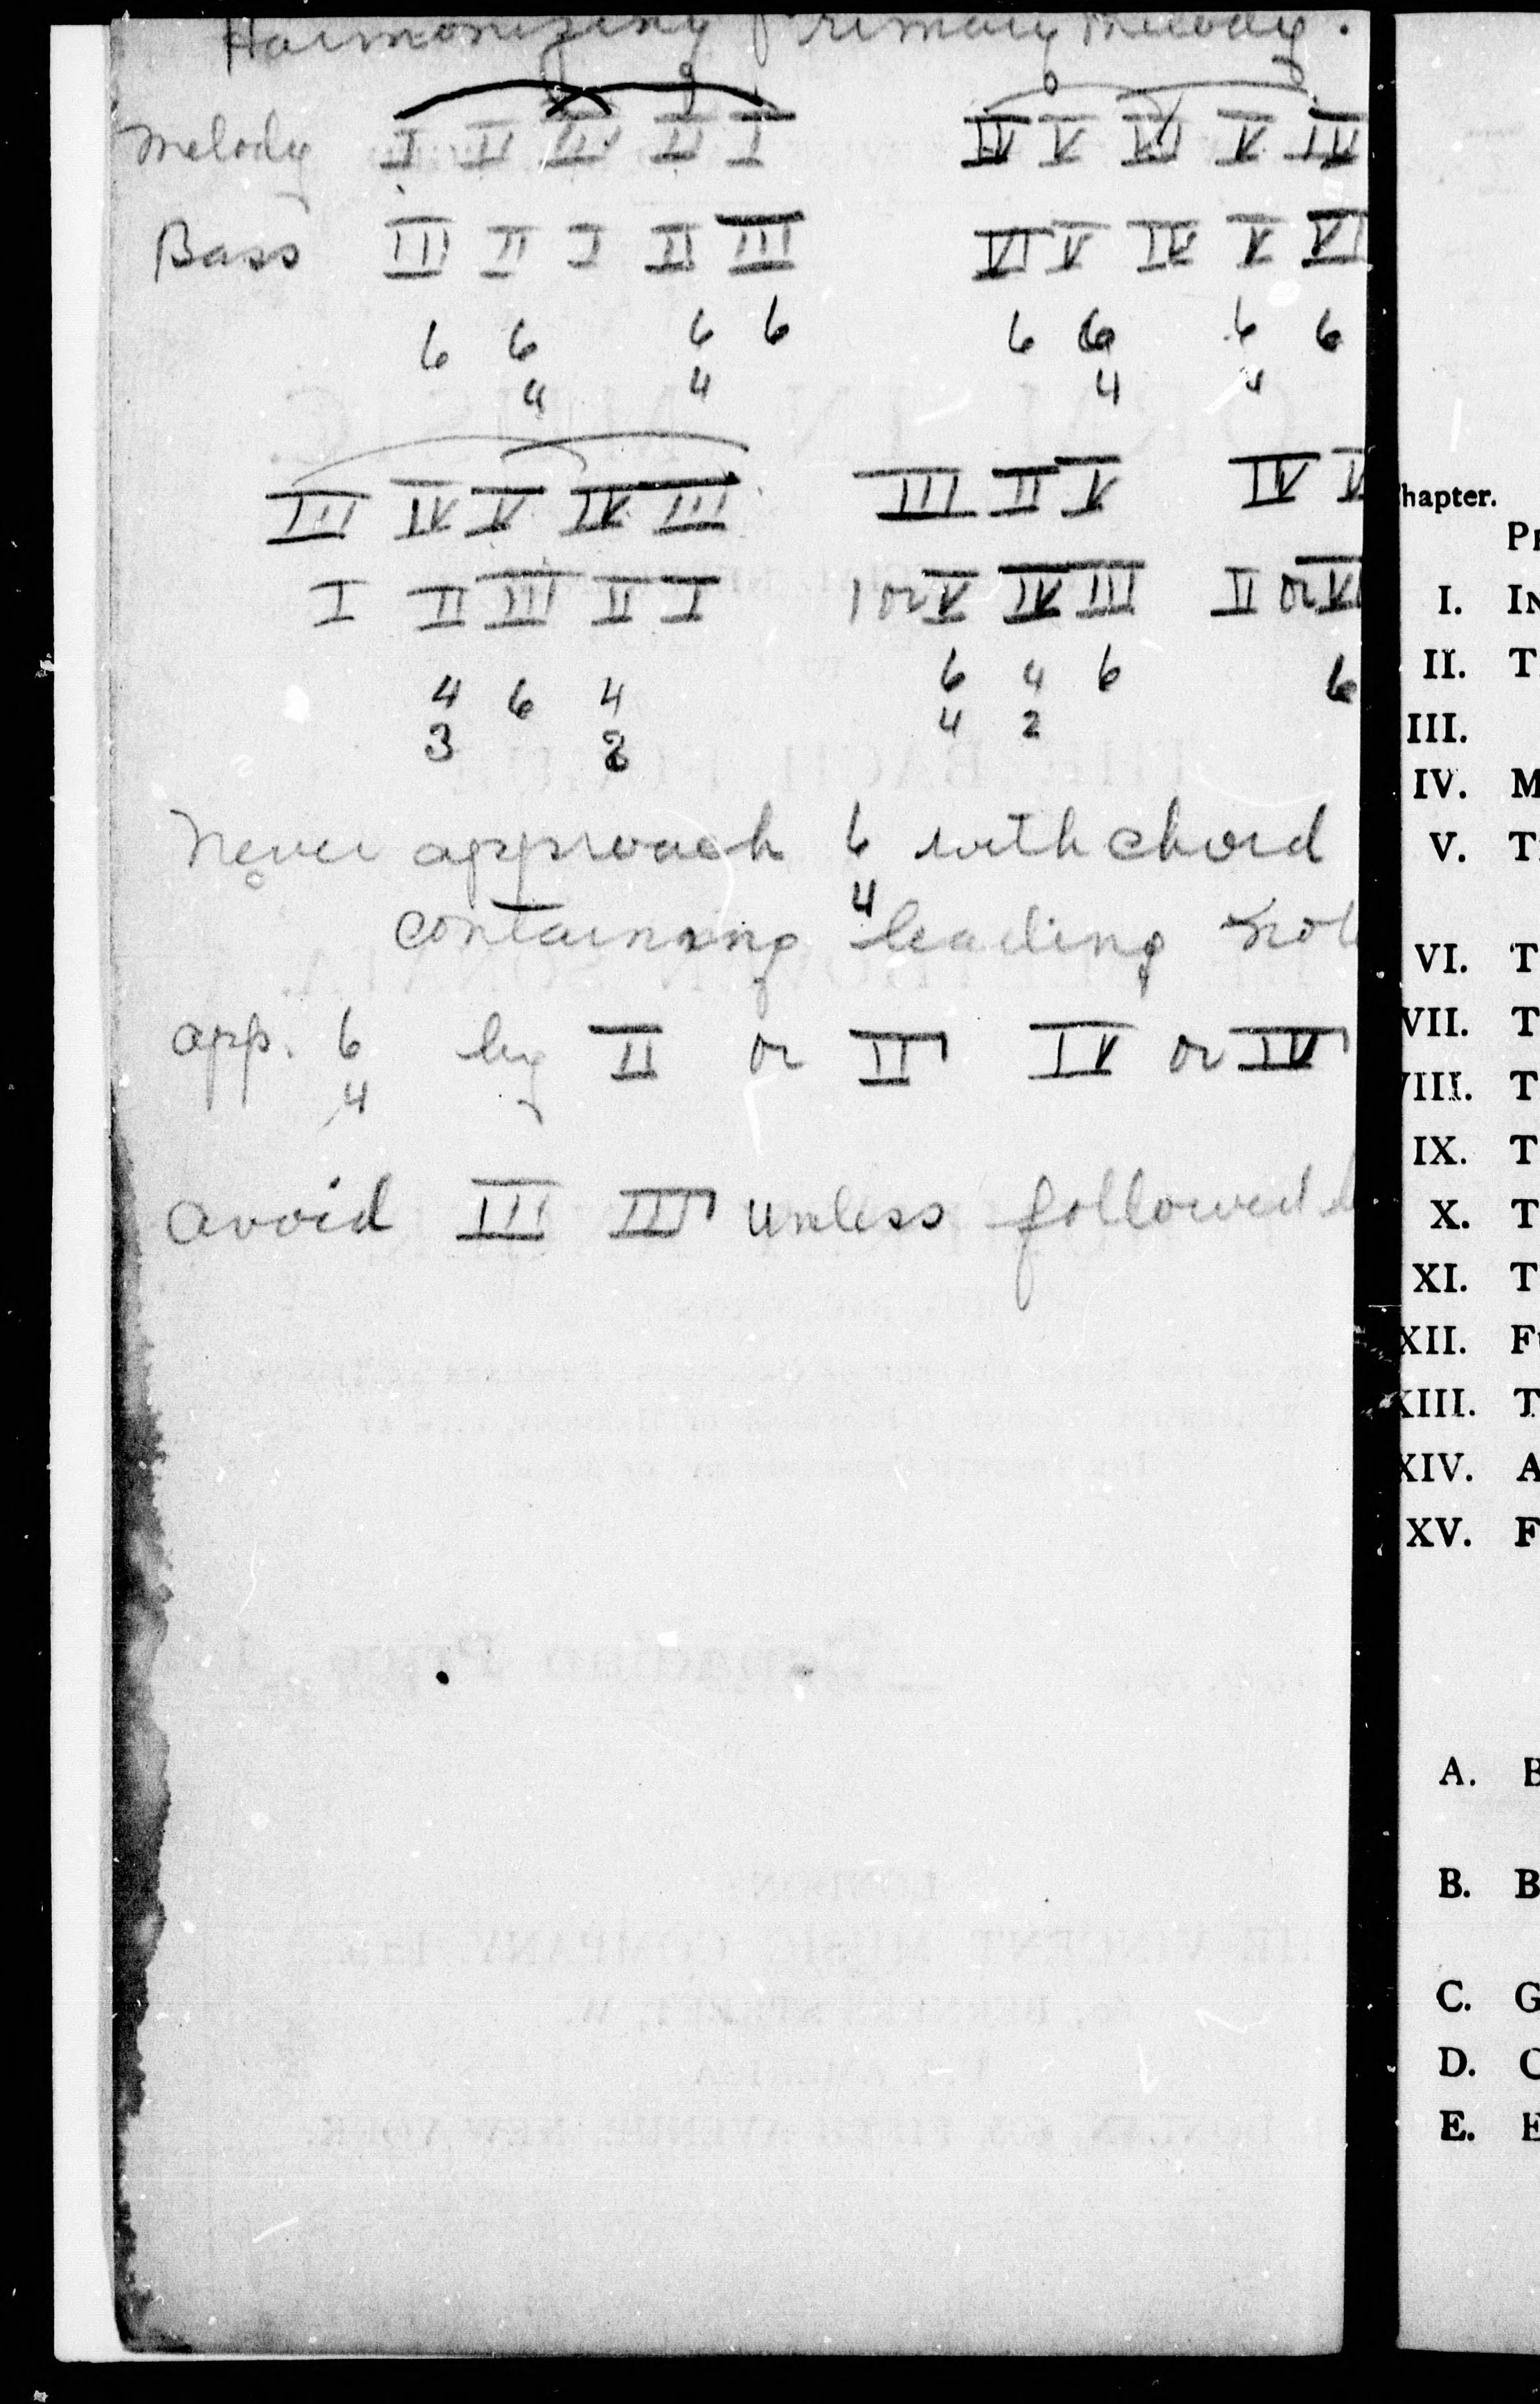 Harmonizing Primary Melody.
Melody I II III II I IV V VI V IV
Bass III II I II III VI V IV V VI
6 6 6 6 6 6 6 6
4 4 4 4
III IV V IV III III II V IV V
I II III II I I or V IV III II or VI
4 6 4 6 4 6 6
3 2 4 2
Never approach 6 with chord
4
containing leading not
app. 6 by II or II' IV or IV'
4
avoid III III' unless followed
hapter.
Pr
I. IN
II. T
III.
IV. M
V. T
VI. T
VII. T
VIII. T
IX. T
X. T
XI. T
XII. F
XIII. T
XIV. A
XV. F
A. B
B. B
C. G
D. C
E. E